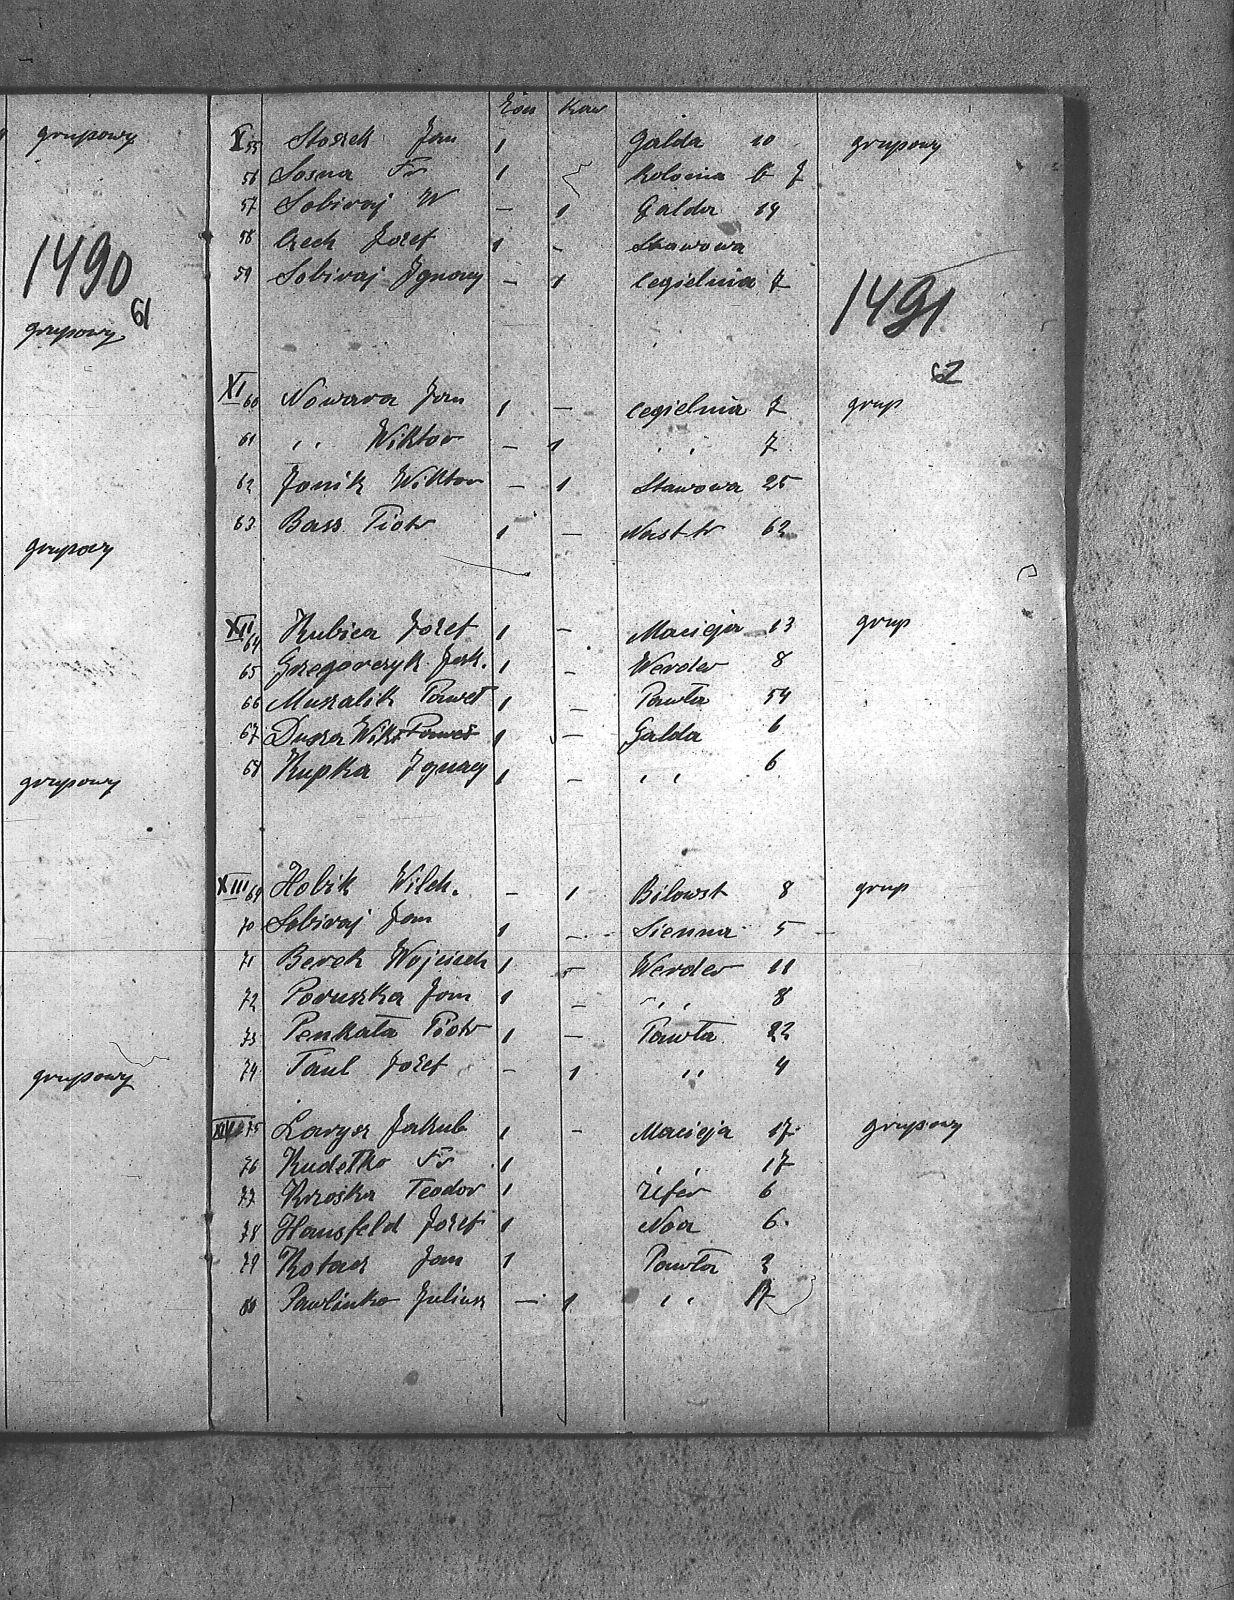 grupowy
1490
61
grupowy
grupowy
grupowy
grupowy
Żon Kaw
X 55 Stoszek Jan 1 Galda 10 grupowy
56 Sosna Fr 1 Kolonia b 7
57 Sobiraj W – 1 Galda 14
58 Czech Jozef 1 – Stawowa
59 Sobiraj Ignacy – 1 Cegielnia 7
1491
62
XI 60 Nowara Jan 1 – Cegielnia 7 grup
61 ,, Wiktor – 1 ,, 7
62 Janik Wiktor – 1 Stawowa 25
63 Bass Piotr 1 – Nast tr 62
XII 64 Kubica Jozef 1 – Macieja 13 grup
65 Gregorczyk Jak. 1 – Werder 8
66 Muszalik Paweł 1 – Pawła 54
67 Dusza Wikt Paweł 1 – Galda 6
68 Kupka Ignacy 1 – ,, 6
XIII 69 Hobik Wilch. – 1 Bilowst 8 grup
70 Sobiraj Jan 1 – Sienna 5
71 Berek Wojciech 1 – Werder 11
72 Poruszka Jan 1 – ,, 8
73 Penkała Piotr 1 – Pawła 22
74 Paul Jozef – 1 ,, 4
XIV 75 Larysz Jakub 1 – Macieja 17 grupowy
76 Kudełko Fr 1 17
77 Krzoska Teodor 1 6
78 Hansfeld Jozef 1 Noa 6
79 Kotasz Jan 1 Pawła 2
80 Pawlinko Juliusz – 1 ,, 17